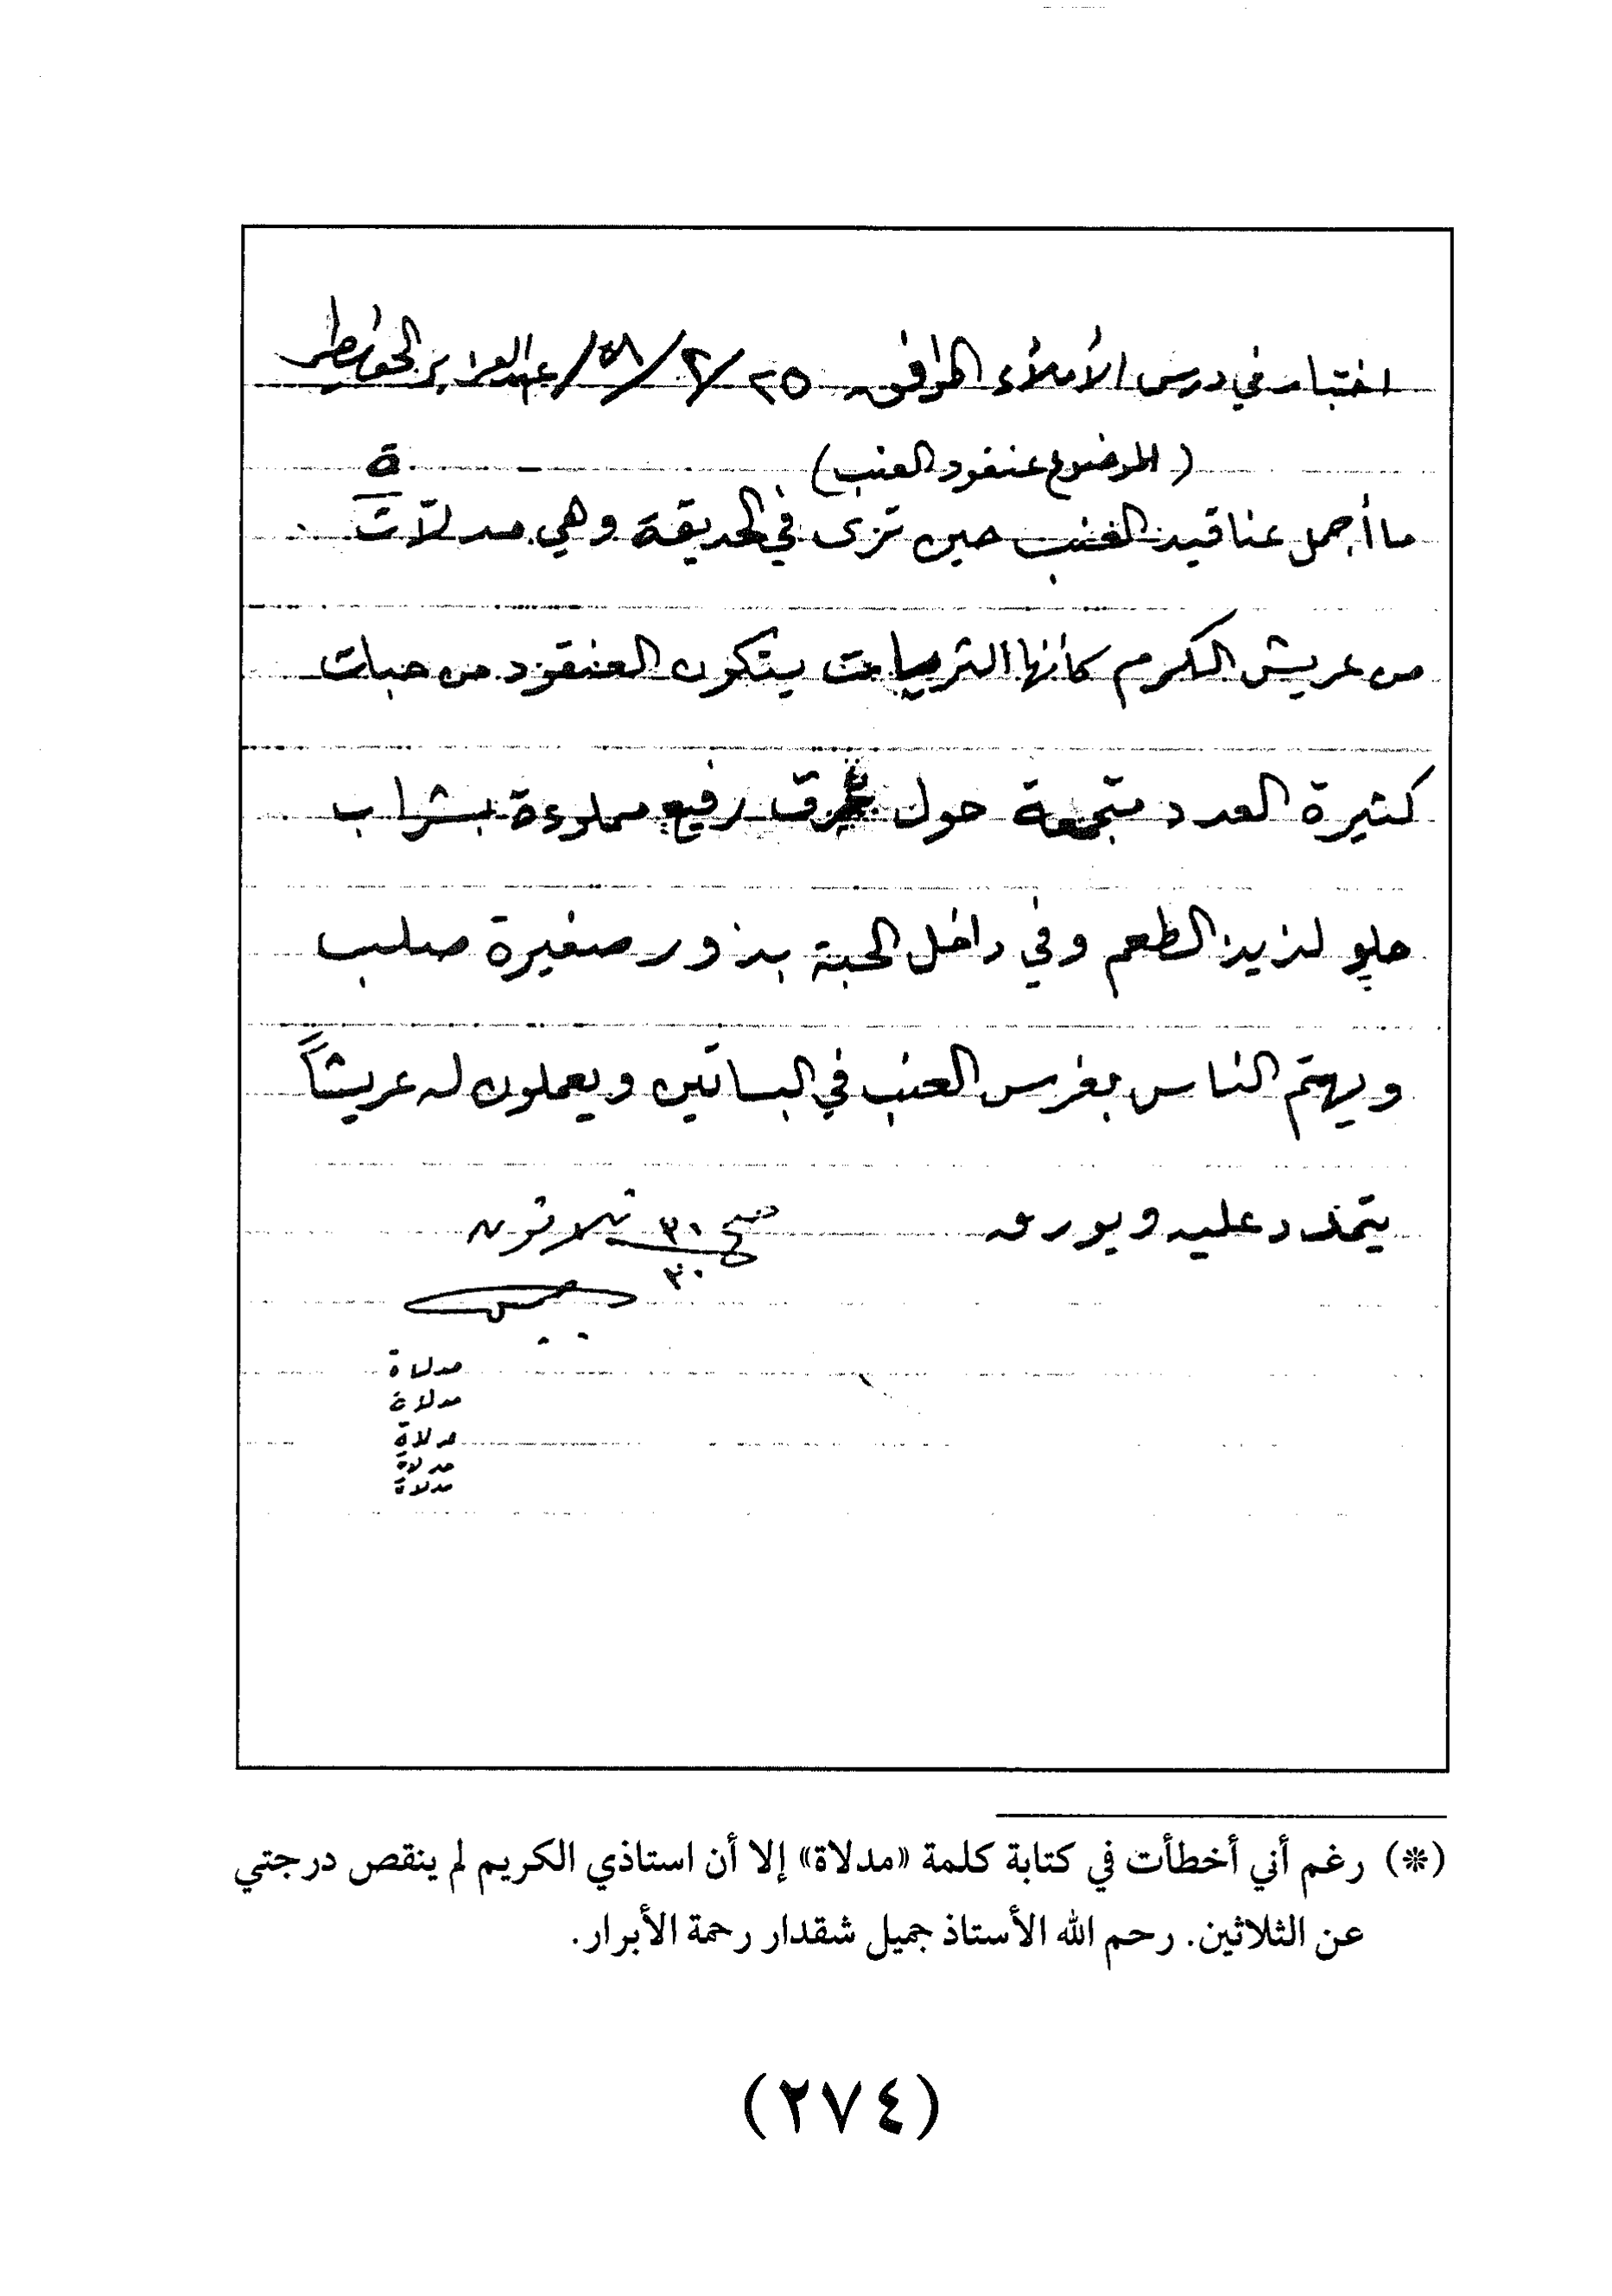 اختبار في درس الأملاء الموافق ٢٥/٢/٥٨/ عبد العزيز الخويطر
(الموضوع عنقود العنب)
ة
ما أجمل عناقيد العنب حين ترى في الحديقة وهي مدلّات
من عريش الكرم كأنها الثريات يتكون العنقود من حبات
كثيرة العدد متجمعة حول عرق رفيع مملوءة بشراب
حلو لذيذ الطعم وفي داخل الحبة بذور صغيرة صلب
ويهتم الناس بغرس العنب في البساتين ويعملون له عريشاً
يتمدد عليه ويورق
صح ٣٠ ثلاثون
٣٠
مدلاة
مدلاة
مدلاة
مدلاة
مدلاة
(*) رغم أني أخطأت في كتابة كلمة «مدلاة» إلا أن استاذي الكريم لم ينقص درجتي
عن الثلاثين. رحم الله الأستاذ جميل شقدار رحمة الأبرار.
(٢٧٤)